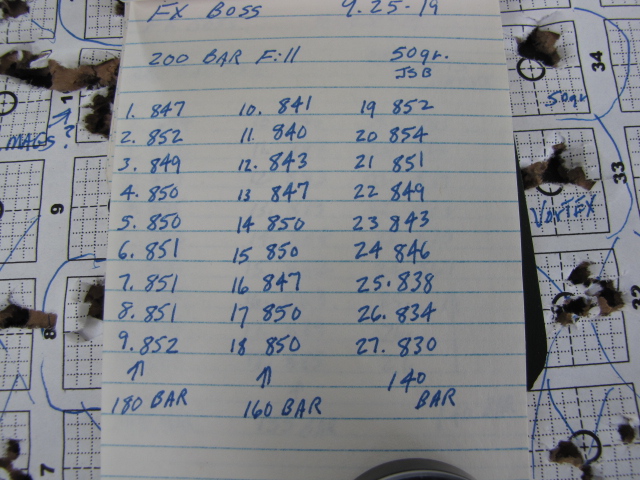 FX BOSS 9.25-19
200 BAR Fill 50gr.
JSB
1. 847 10. 841 19 852
2. 852 11. 840 20 854
3. 849 12. 843 21 851
4. 850 13 847 22 849
5. 850 14 850 23 843
6. 851 15 850 24 846
7. 851 16 847 25. 838
8. 851 17 850 26. 834
9. 852 18 850 27. 830
↑ ↑ 140
180 BAR 160 BAR BAR
MAGS?
1
9
8
7
34
50gr
33
VorTEX
32